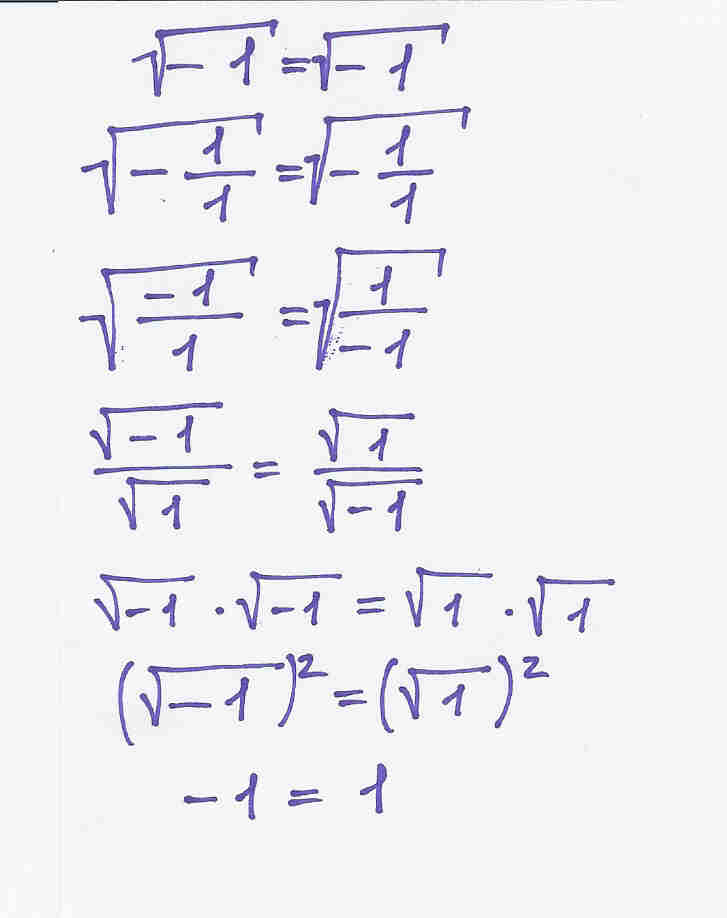 √-1 = √-1
√(-1/1) = √(-1/1)
√((-1)/1) = √(1/(-1))
√-1/√1 = √1/√-1
√-1 · √-1 = √1 · √1
(√-1)² = (√1)²
-1 = 1